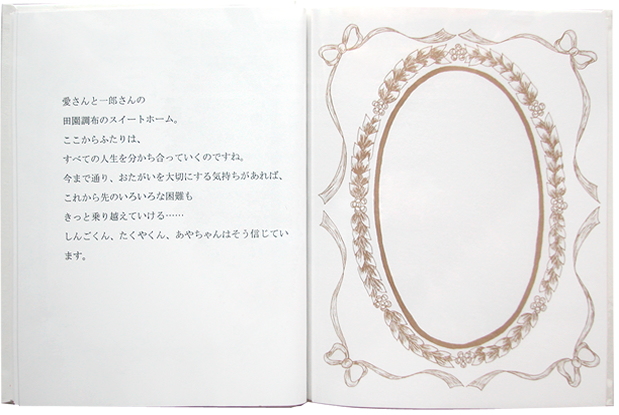 愛さんと一郎さんの
田園調布のスイートホーム。
ここからふたりは、
すべての人生を分かち合っていくのですね。
今まで通り、おたがいを大切にする気持ちがあれば、
これから先のいろいろな困難も
きっと乗り越えていける……
しんごくん、たくやくん、あやちゃんはそう信じてい
ます。